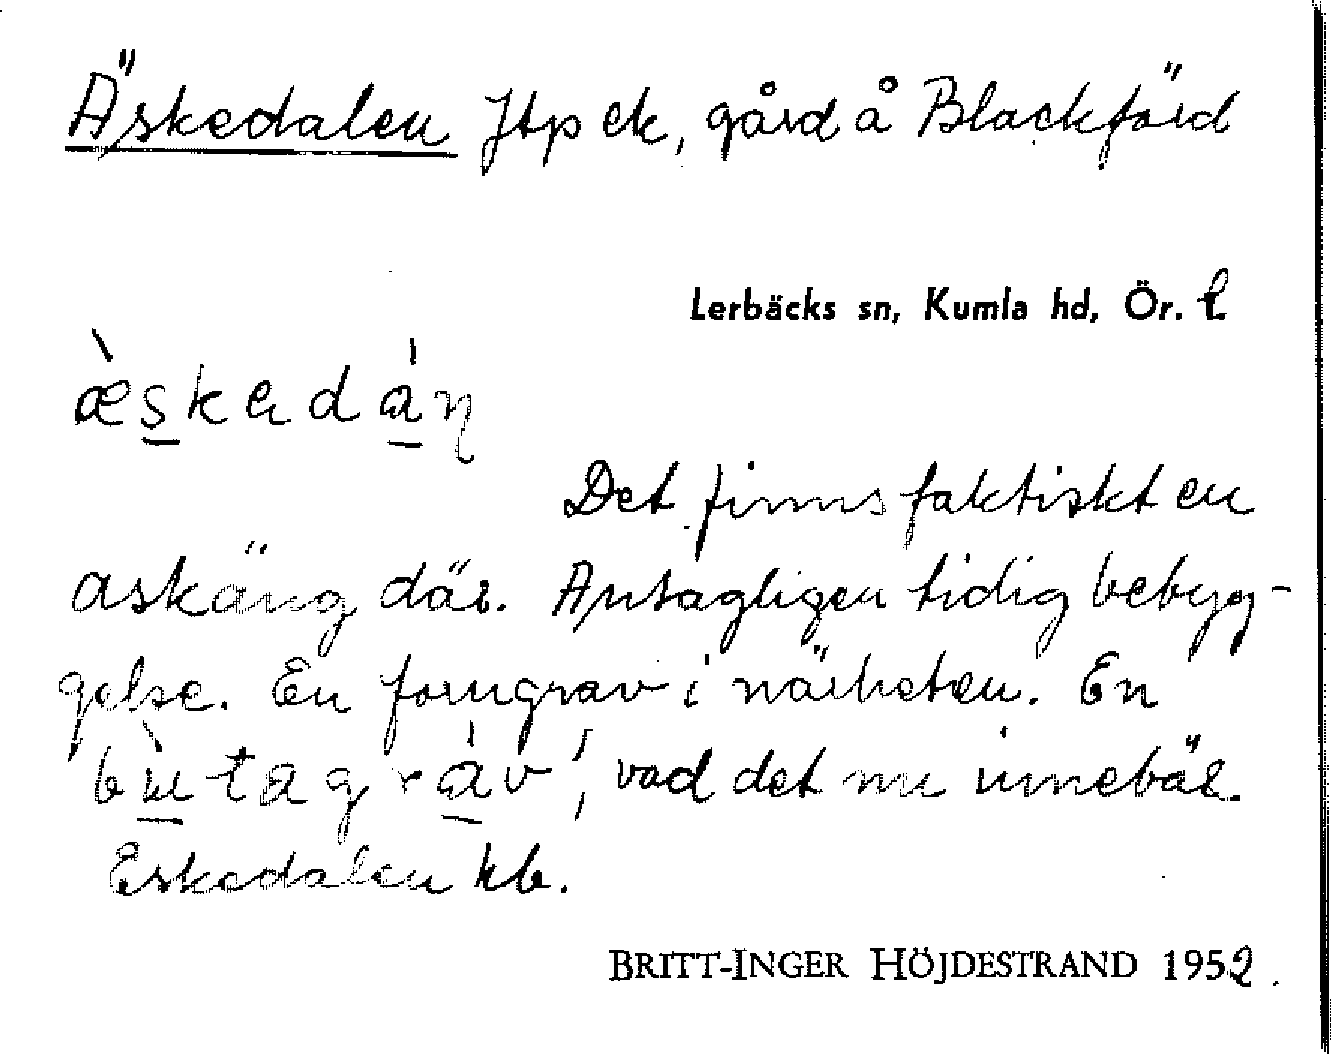 Äskedalen Jtp ek, gård å Blackförd
Lerbäcks sn, Kumla hd, Ör. l
æ̀skadáɳ
Det finns faktiskt en
askäng där. Antagligen tidig bebyg-
gelse. En forngrav i närheten. En
'bùtagráv', vad det nu innebär.
Eskedalen kb.
BRITT-INGER HÖJDESTRAND 1952.